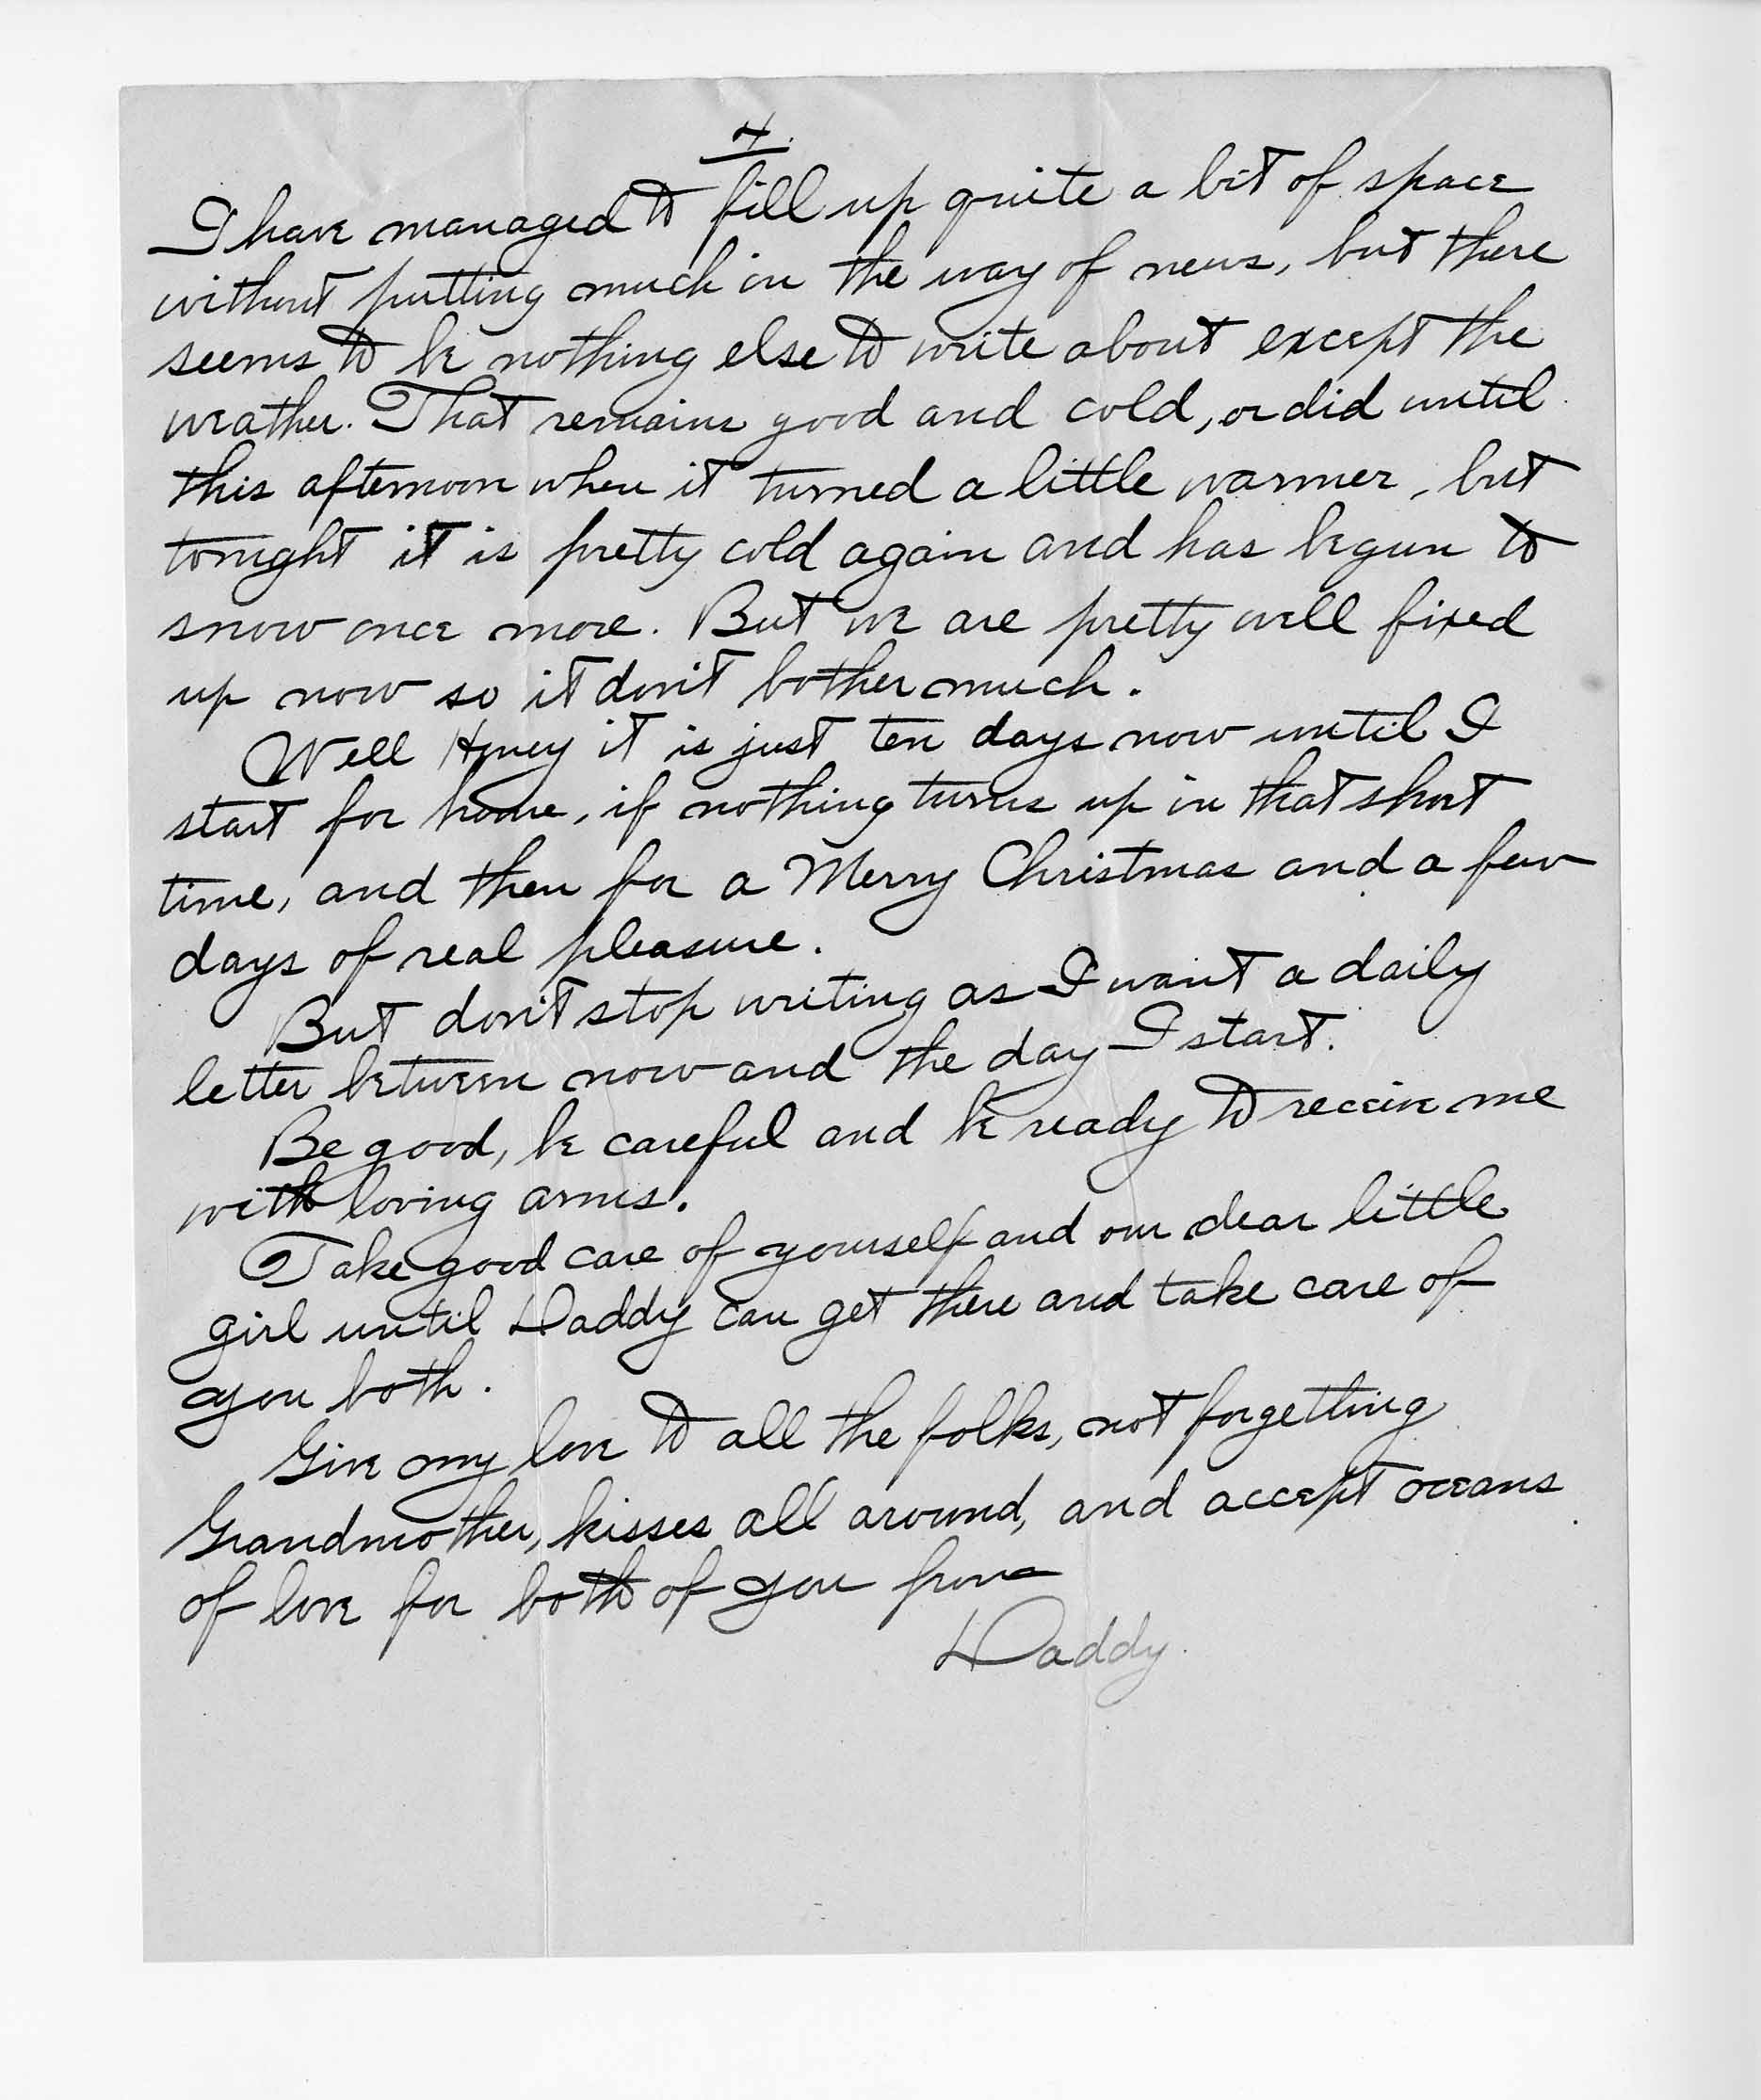 4.
I have managed to fill up quite a bit of space
without putting much in the way of news, but there
seems to be nothing else to write about except the
weather. That remains good and cold, or did until
this afternoon when it turned a little warmer, but
tonight it is pretty cold again and has begun to
snow once more. But we are pretty well fixed
up now so it don't bother much.
Well Honey it is just ten days now until I
start for home, if nothing turns up in that short
time, and then for a Merry Christmas and a few
days of real pleasure.
But don't stop writing as I want a daily
letter between now and the day I start.
Be good, be careful and be ready to receive me
with loving arms.
Take good care of yourself and our dear little
girl until Daddy can get there and take care of
you both.
Give my love to all the folks, not forgetting
Grandmother, kisses all around, and accept oceans
of love for both of you from
Daddy.